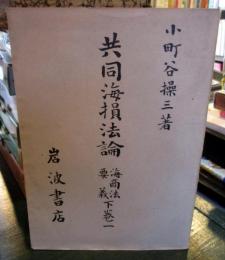 小町谷操三著
共同海損法論
海商法
要義下巻一
岩波書店